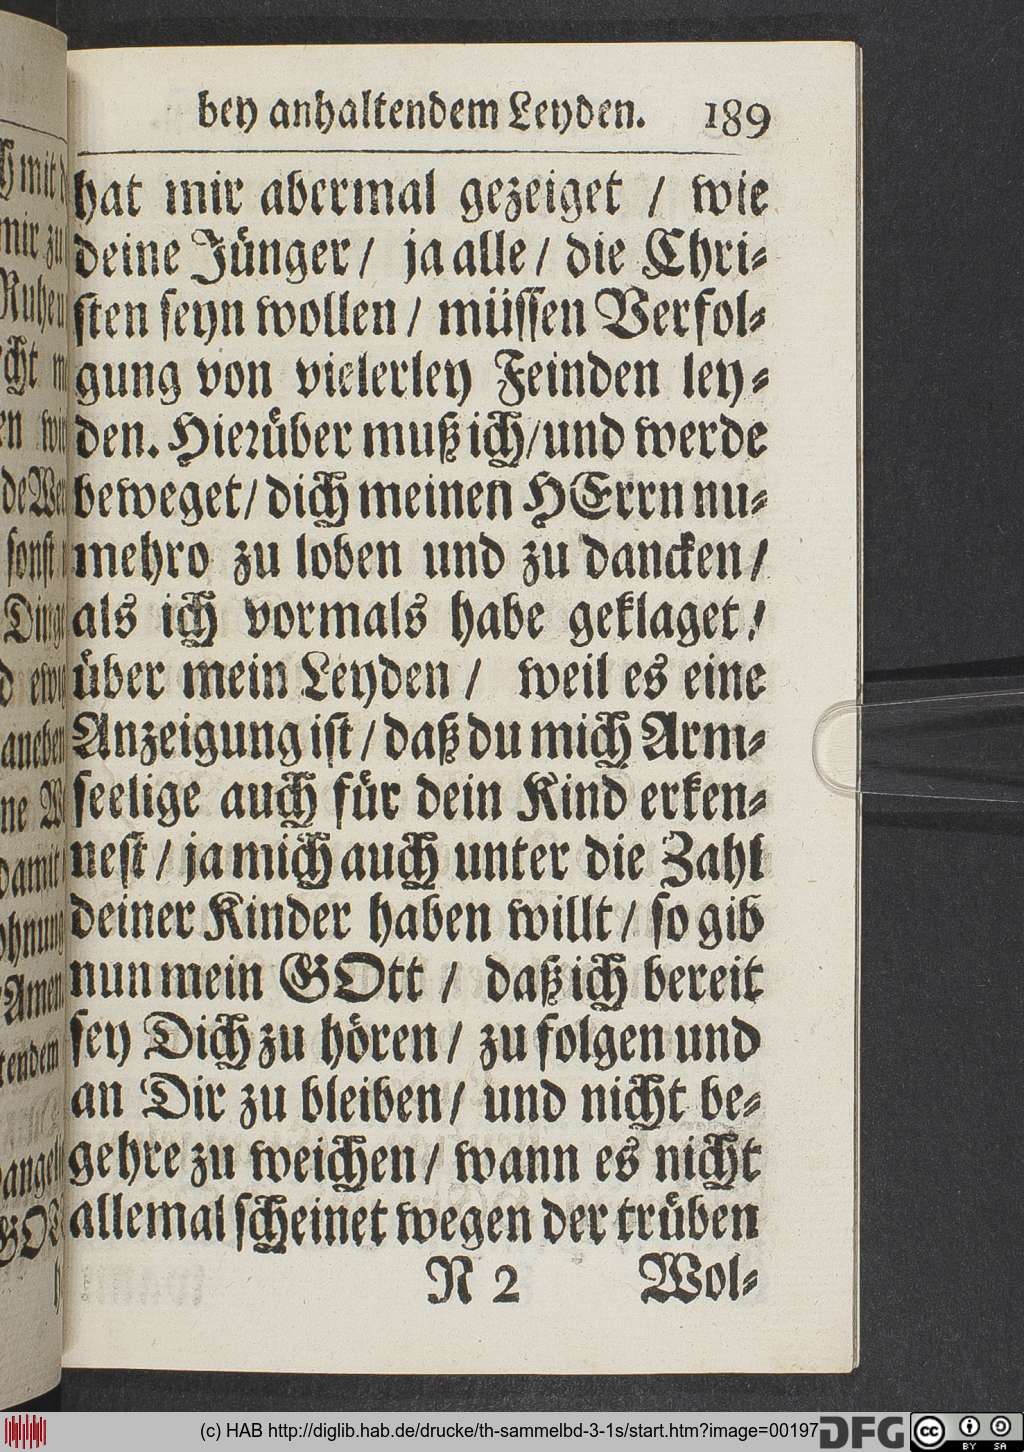 bey anhaltendem Leyden. 189
hat mir abermal gezeiget / wie
deine Jünger / ja alle / die Chri-
sten seyn wollen / müssen Verfol-
gung von vielerley Feinden ley-
den. Hierüber muß ich / und werde
beweget / dich meinen HErrn nu-
mehro zu loben und zu dancken /
als ich vormals habe geklaget /
über mein Leyden / weil es eine
Anzeigung ist / daß du mich Arm-
seelige auch für dein Kind erken-
nest / ja mich auch unter die Zahl
deiner Kinder haben willt / so gib
nun mein GOtt / daß ich bereit
sey Dich zu hören / zu folgen und
an Dir zu bleiben / und nicht be-
gehre zu weichen / wann es nicht
allemal scheinet wegen der trüben
N 2 Wol-
(c) HAB http://diglib.hab.de/drucke/th-sammelbd-3-1s/start.htm?image=00197
DFG
cc BY SA